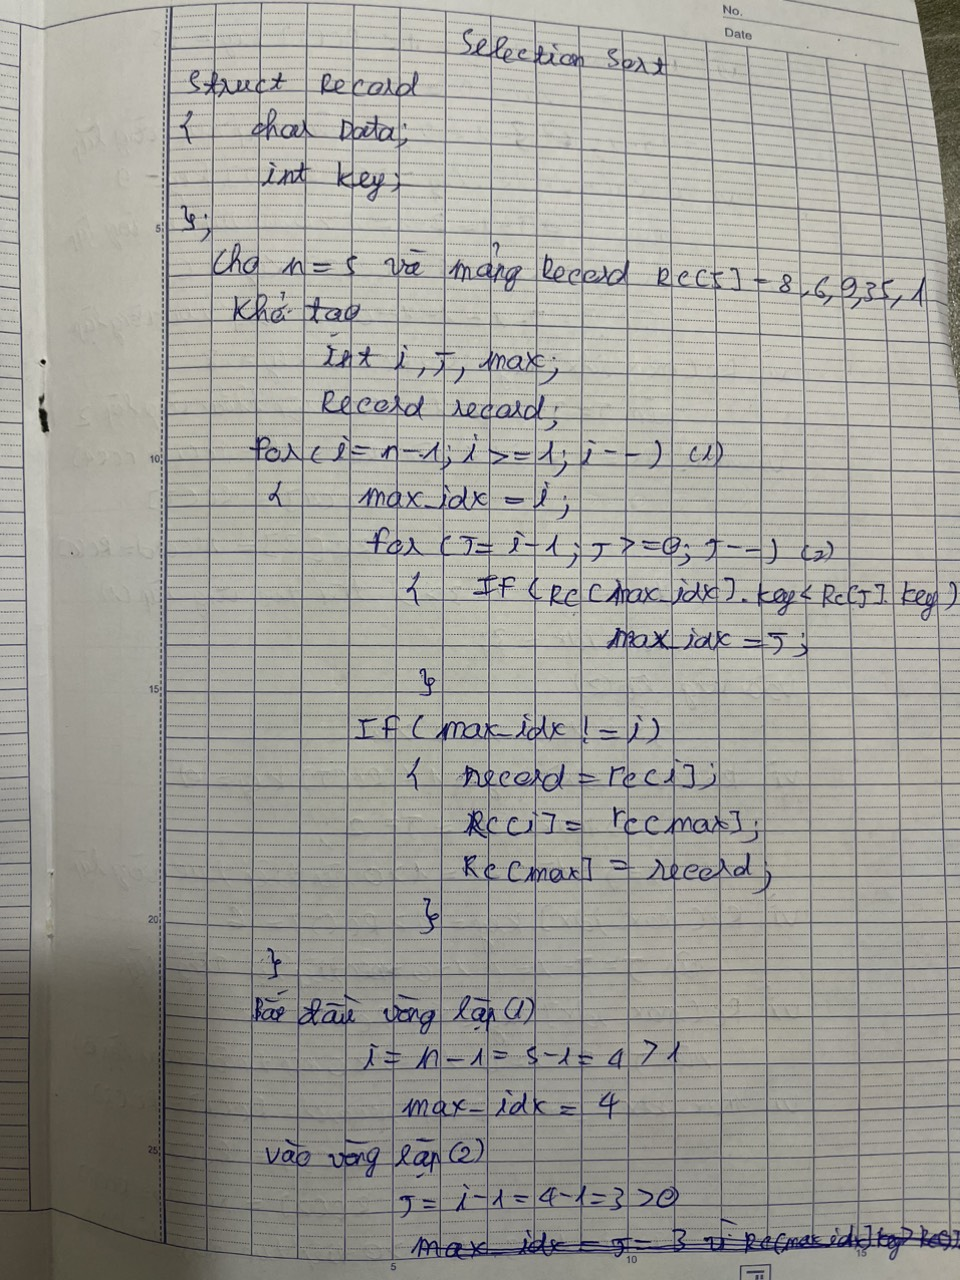 No.
Date
Selection Sort
Struct Record
{ char Data;
int key;
};
Cho n = 5 và mảng Record Rc[5] = 8,6,9,35,1
Khở tạo
Int i, J, max;
Record record;
for (i = n-1; i >= 1; i--) (1)
{ max_idx = i;
for (J = i-1; J >= 0; J--) (2)
{ If (Rc[max_idx].key < Rc[J].key)
max_idx = J;
}
If (max_idx != i)
{ record = rc[i];
Rc[i] = rc[max];
Rc[max] = record;
}
}
Bắt đầu vòng lặp (1)
i = n-1 = 5-1 = 4 > 1
max_idx = 4
vào vòng lặp (2)
J = i-1 = 4-1 = 3 > 0
max_idx = J = 3 vì Rc[max_idx].key >
5
10
15
20
25
5
10
15